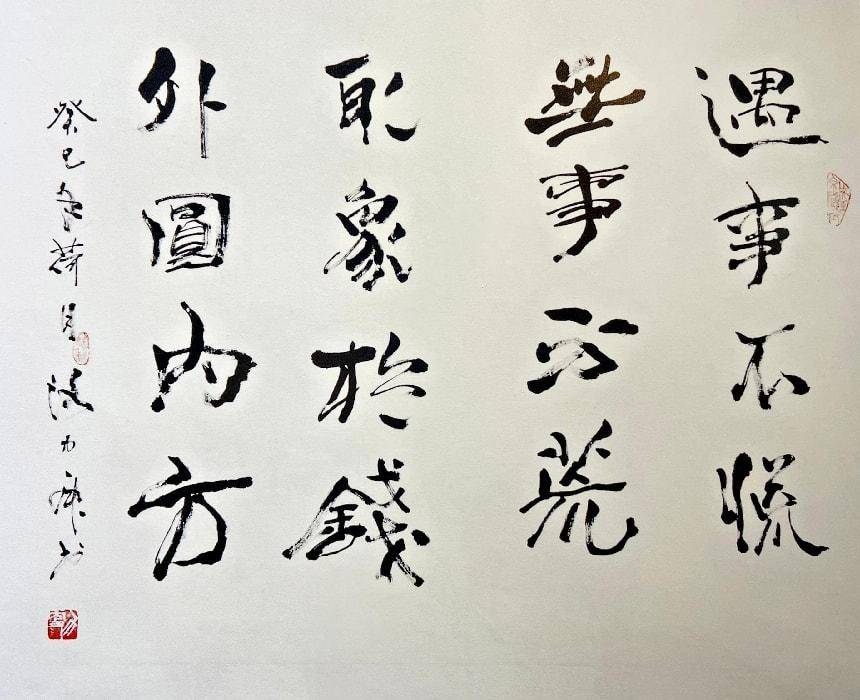 遇事不慌
無事不荒
取象於錢
外圓內方
癸巳年荷月